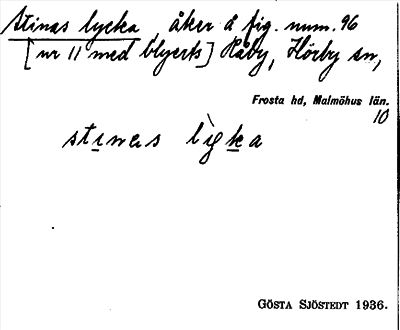 Stinas lycka, åker å fig. num. 96
[nr 11 med blyerts] Råby, Hörby sn,
Frosta hd, Malmöhus län.
10
stinas lỳka
GÖSTA SJÖSTEDT 1936.